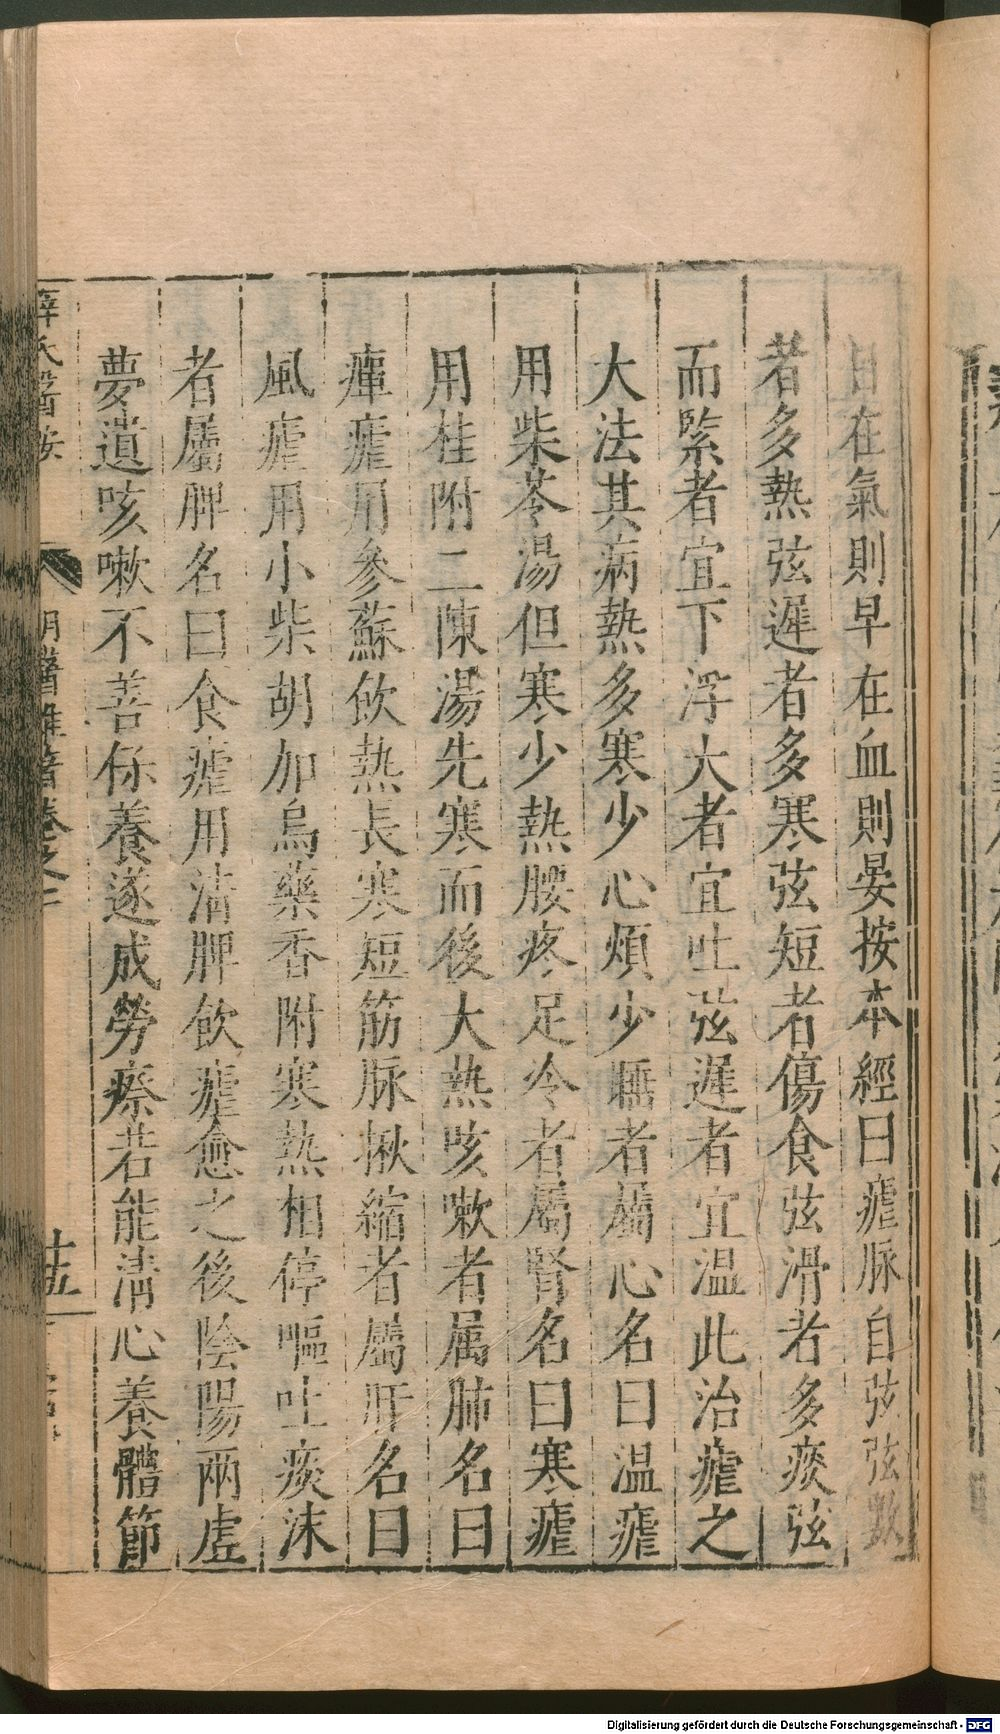 日在氣則早在血則晏按本經曰瘧脉自弦弦數
者多熱弦遲者多寒弦短者傷食弦滑者多痰弦
而緊者宜下浮大者宜吐弦遲者宜温此治瘧之
大法其病熱多寒少心煩少睡者屬心名曰温瘧
用柴苓湯但寒少熱腰疼足冷者屬腎名曰寒瘧
用桂附二陳湯先寒而後大熱咳嗽者属肺名曰
瘅瘧用參蘇飲熱長寒短筋脉揪縮者屬肝名曰
風瘧用小柴胡加烏藥香附寒熱相停嘔吐痰沫
者屬脾名曰食瘧用清脾飲瘧愈之後陰陽兩虛
夢遺咳嗽不善保養遂成勞瘵若能清心養體節
薛氏醫按
明醫雜著卷之二
十五
Digitalisierung gefördert durch die Deutsche Forschungsgemeinschaft - DFG